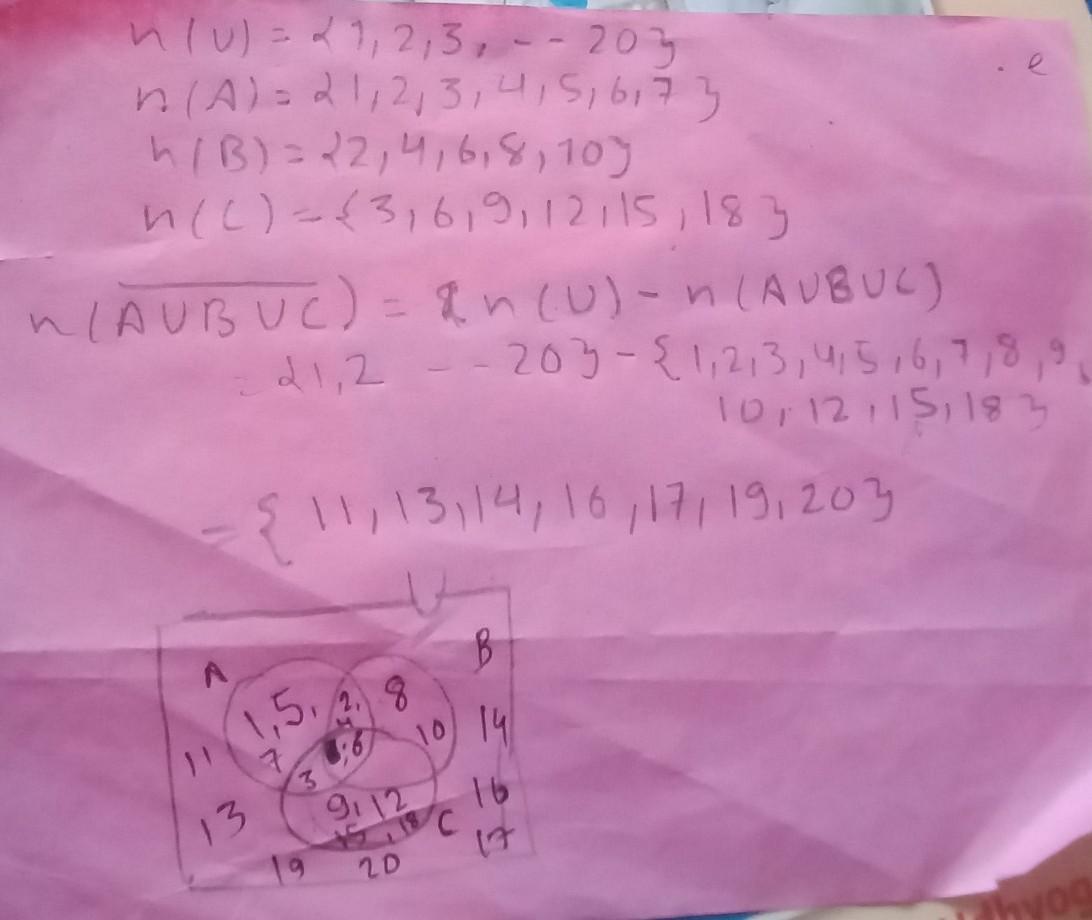 n(U) = {1, 2, 3, -- 20}
. e
n(A) = {1, 2, 3, 4, 5, 6, 7}
n(B) = {2, 4, 6, 8, 10}
n(C) = {3, 6, 9, 12, 15, 18}
n(A̅ ̅U̅ ̅B̅ ̅U̅ ̅C̅) = n(U) - n(AUBUC)
= {1, 2 -- 20} - {1, 2, 3, 4, 5, 6, 7, 8, 9,
10, 12, 15, 18}
= { 11, 13, 14, 16, 17, 19, 20}
U
A B
1, 5, 2, 8
4 10 14
11 7 ; 6
3
13 9, 12 16
15, 18 C 17
19 20